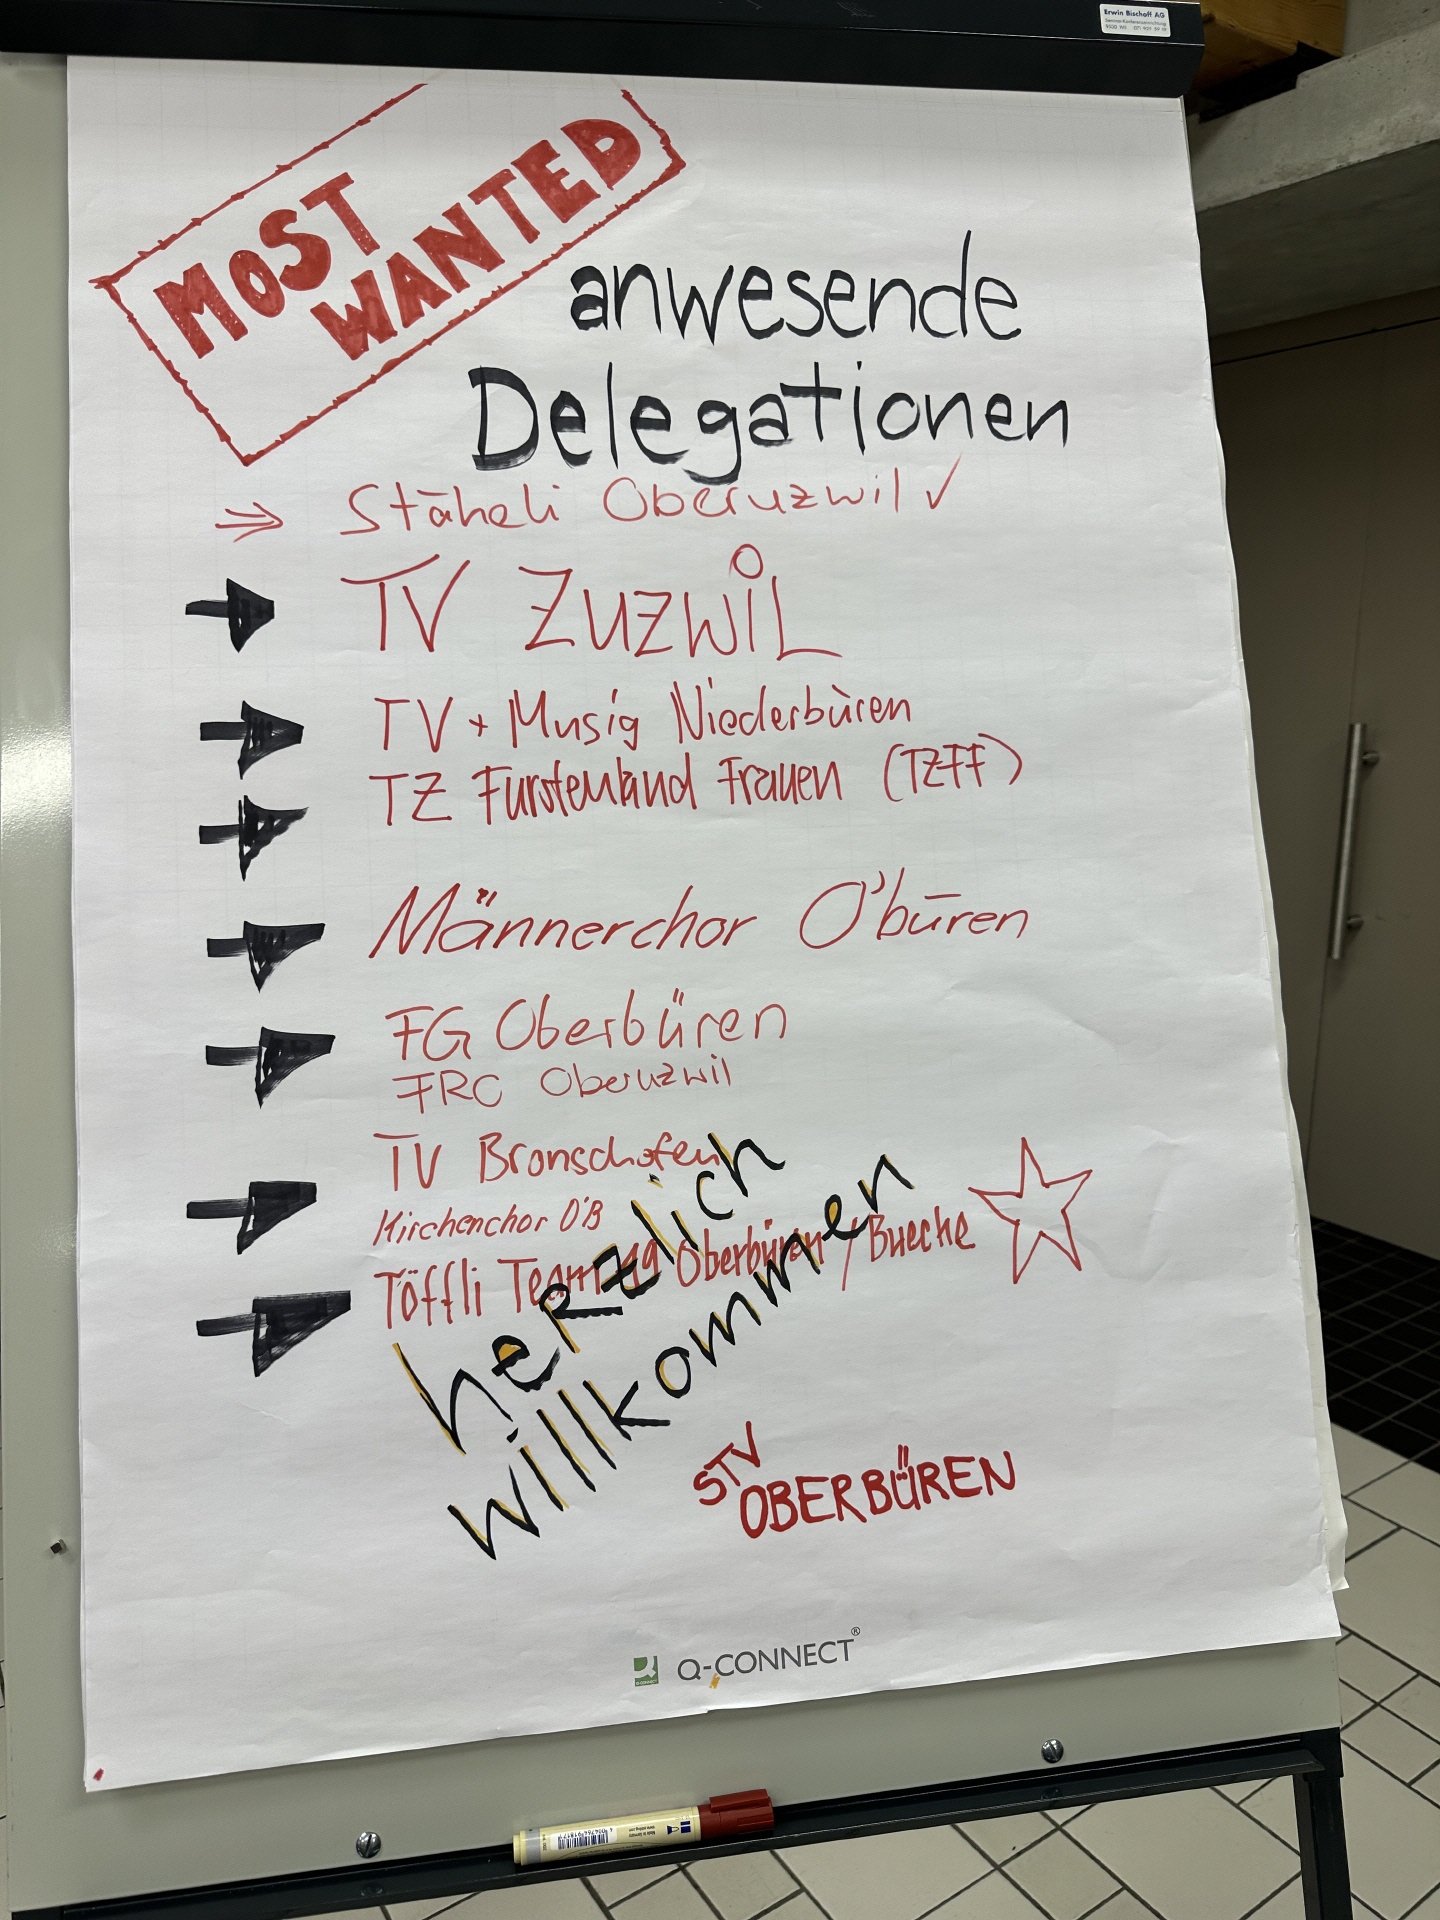 Erwin Bischoff AG
MOST
WANTED
anwesende
Delegationen
Stäheli Oberuzwil ✓
TV ZUZWIL
TV + Musig Niederbüren
TZ Fürstenland Frauen (TZFF)
Männerchor O'büren
FG Oberbüren
FRC Oberuzwil
TV Bronschofen
Kirchenchor O'B
Töffli Team 19 Oberbüren / Bueche
herzlich
willkommen
STV
OBERBÜREN
Q-CONNECT®